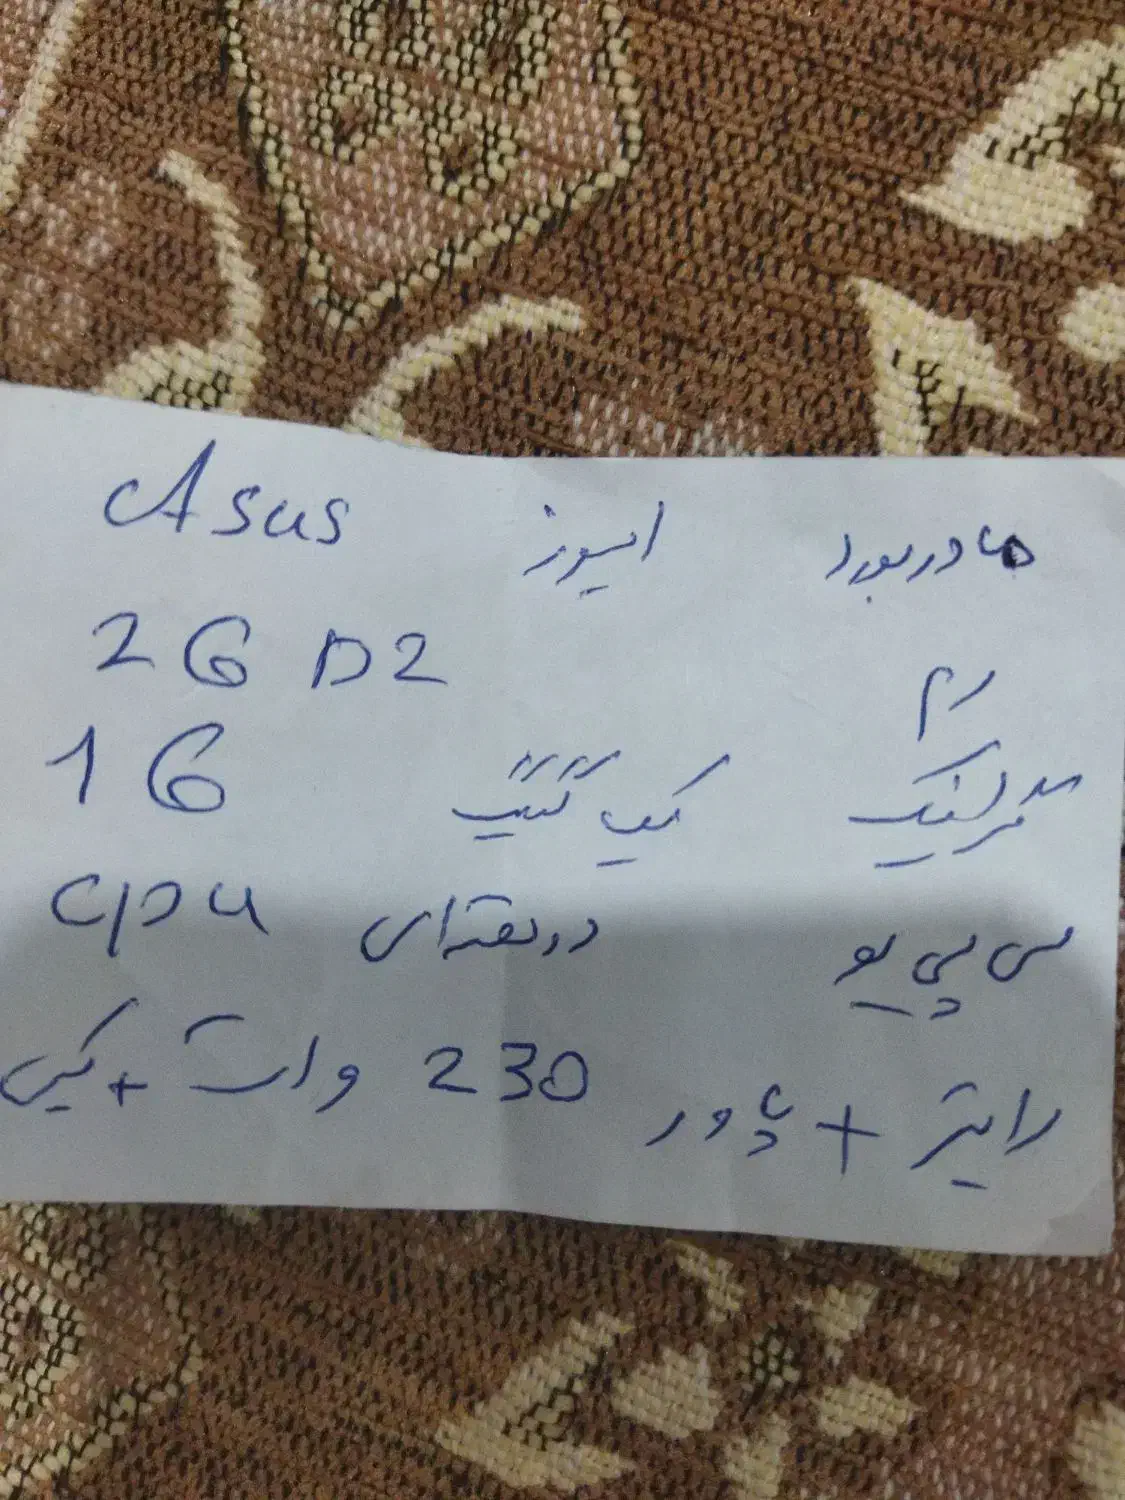 مادربورد ایسوز Asus
رم 2G D2
گرافیک یک گیگ 1G
سی پی یو دو هسته ای cpu
رایتر + پاور 230 وات + کیس